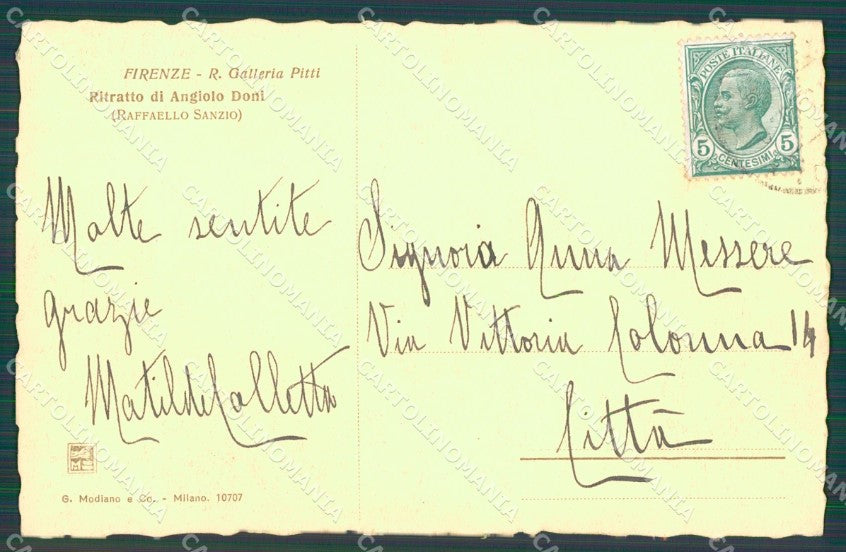 FIRENZE - R. Galleria Pitti
Ritratto di Angiolo Doni
(RAFFAELLO SANZIO)
Molte sentite
grazie
Matilde Colletta
G. Modiano e Co. - Milano. 10707
POSTE ITALIANE
5 CENTESIMI 5
Signora Anna Messere
Via Vittoria Colonna 14
Città
CARTOLINOMANIA